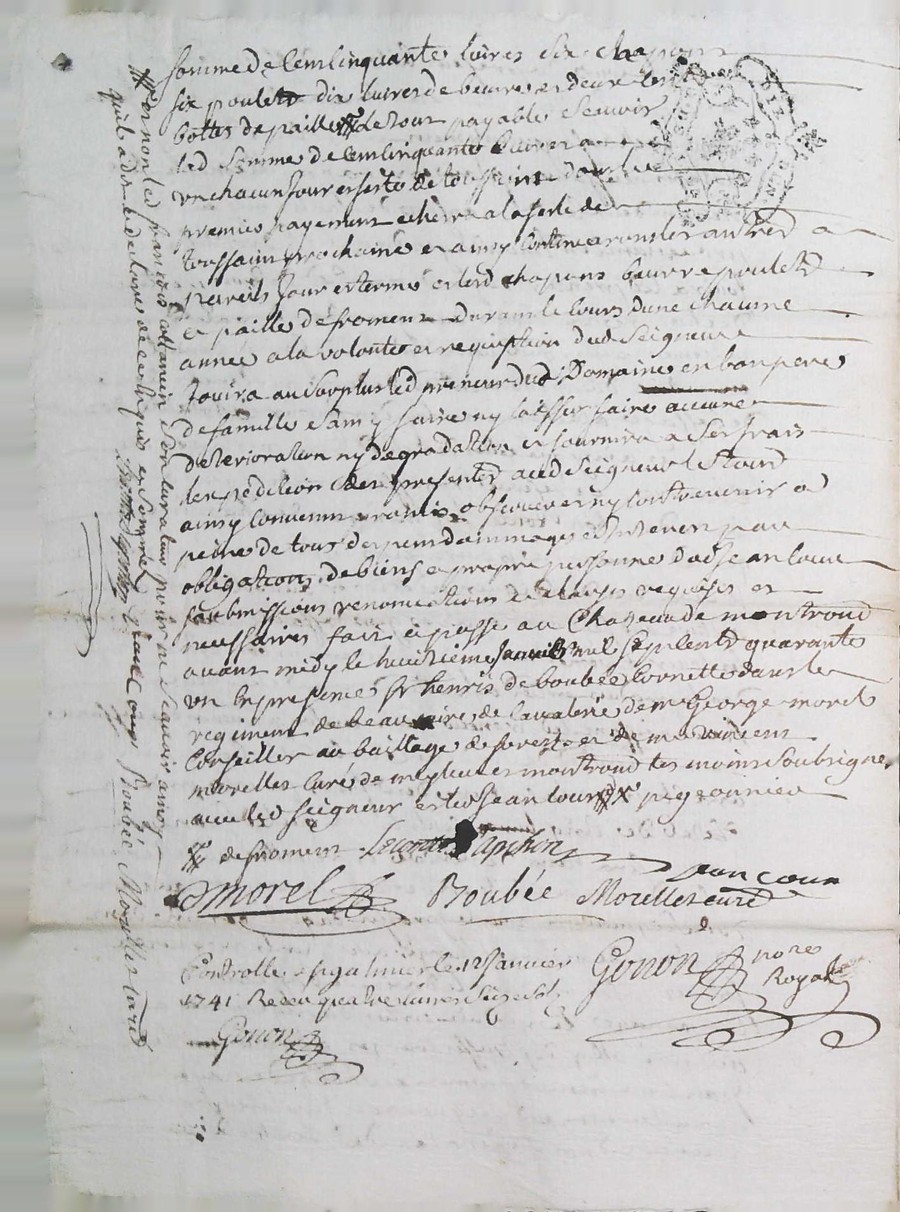 somme de cem cinquante livres six chapons
six pouletz dix livres de beurre et deux cent
bottes de paille de tour payable scavoir
lad somme de cem cinquante livres a
un chacun jour et feste de toussaint dont le
premier payement echera a la feste de
toussaint prochaine et ainsy continuera on les autres a
pareils jour et terme et lesd chapons beurre pouletz
et paille de froment durant le cours dune chacune
année a la volonté et requisition dud Seigneur
jouira au surplus led preneur dud Domaine en bon pere
de famille sans y faire ny laisser faire aucune
deterioration ny degradation et fournira a ses frais
lexpedition des presentes aud Seigneur
ainsy convenu promis observer ny contrevenir a
peine de tous despens dommages et interest par
obligation de biens et propre personne dud jean cour
soubmissions renonciations et clauses requises et
necessaires fait et passé au Chateau de montrond
avant midy le huitieme janvier mil sept cent quarante
un en presence de sr henris de boubée Cornette dans le
regiment de cavalerie de mr George morel
Conseiller au bailliage de forest et de mr vincent
morelles curé de meylieu et montrond temoins soubsigne
avec led seigneur et led jean cour pigeonnier
de froment Lecomte Dapchon
jean cour
morel Boubée Morelles curé
Controllé a st galmier le 12 janvier Gonon nore
1741 Receu Royal
Gonon
et non led francois son curateur pour ne scavoir ainsy
quil a dit et declaré de ce enquis et sommé jean Cour Boubée Morelles curé